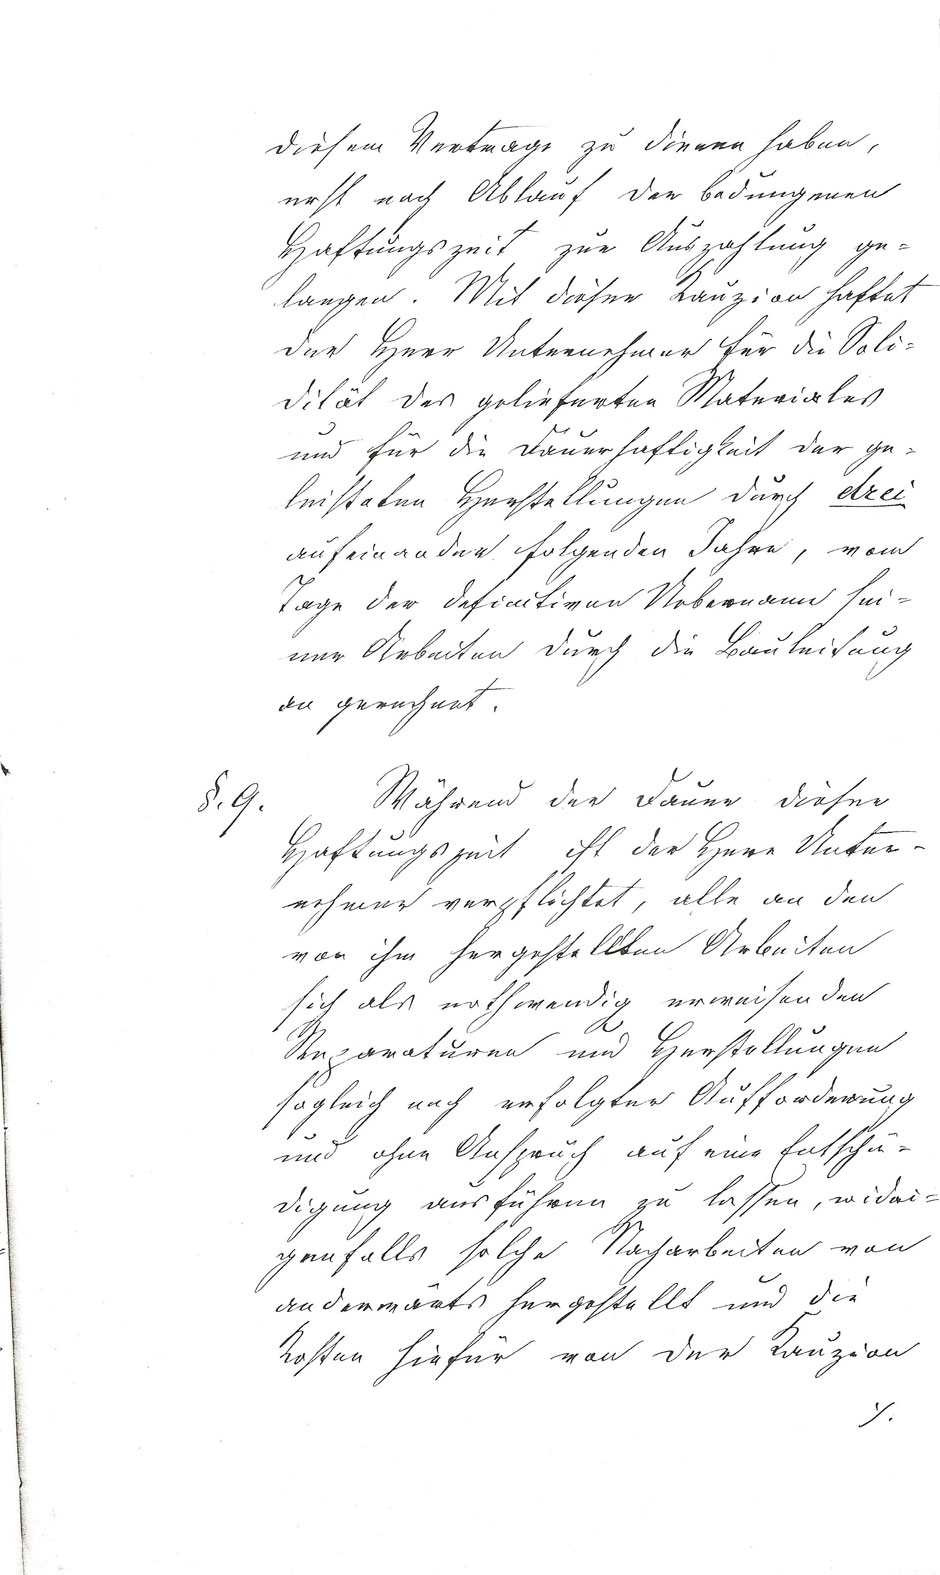 diesem Vertrage zu dienen haben,
erst nach Ablauf der bedungenen
Haftungszeit zur Auszahlung ge=
langen. Mit dieser Kauzion haftet
der Herr Unternehmer für die Soli=
dität des gelieferten Materiales
und für die Dauerhaftigkeit der ge=
leisteten Herstellungen durch drei
aufeinander folgenden Jahre, vom
Tage der definitiven Uebername sei=
ner Arbeiten durch die Bauleitung
an gerechnet.
§. 9. Während der Dauer dieser
Haftungszeit ist der Herr Unter=
nehmer verpflichtet, alle an den
von ihm hergestellten Arbeiten
sich als nothwendig erweisenden
Reparaturen und Herstellungen
sogleich nach erfolgter Aufforderung
und ohne Anspruch auf eine Entschä=
digung ausführen zu lassen, widri=
genfalls solche Nacharbeiten von
anderwärts hergestellt und die
Kosten hiefür von der Kauzion